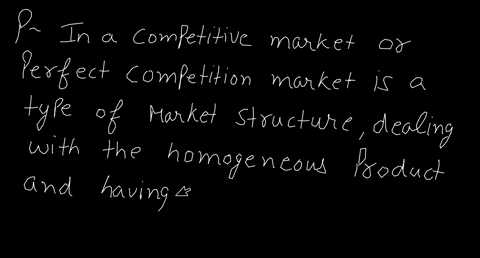 P~ In a competitive market or
Perfect competition market is a
type of Market structure, dealing
with the homogeneous Product
and having